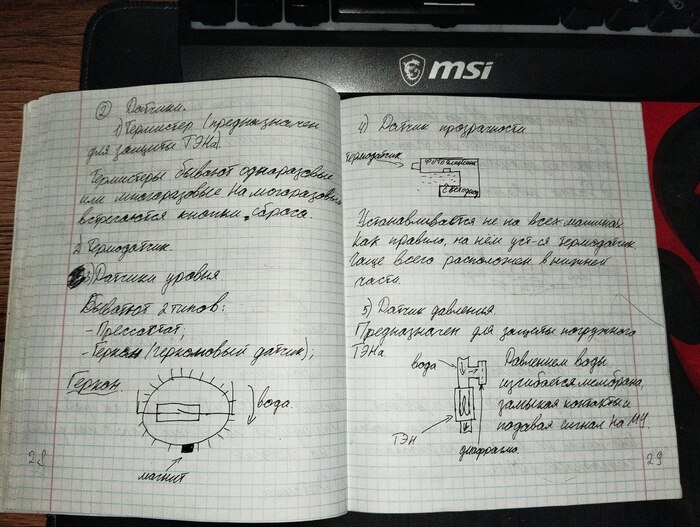 msi
② Датчики.
1) Термистер (предназначен
для защиты ТЭНа)
Термистеры бывают одноразовые
или многоразовые. На могоразовых
встречаются кнопки сброса.
2) Термодатчик.
3) Датчики уровня.
Бывают 2 типов:
- Прессостат;
- Геркон (геркомовый датчик);
Геркон
вода.
магнит
28
4) Датчик прозрачности
термодатчик
светодиод
Устанавливается не на всех машинах
Как правило, на нём уст-ся термодатчик
Чаще всего расположен в нижней
части.
5) Датчик давления
Предназначен для защиты погружного
ТЭНа
вода
ТЭН
диафрагма
Давлением воды
изгибается мембрана,
замыкая контакты и
подавая сигнал на МУ.
29